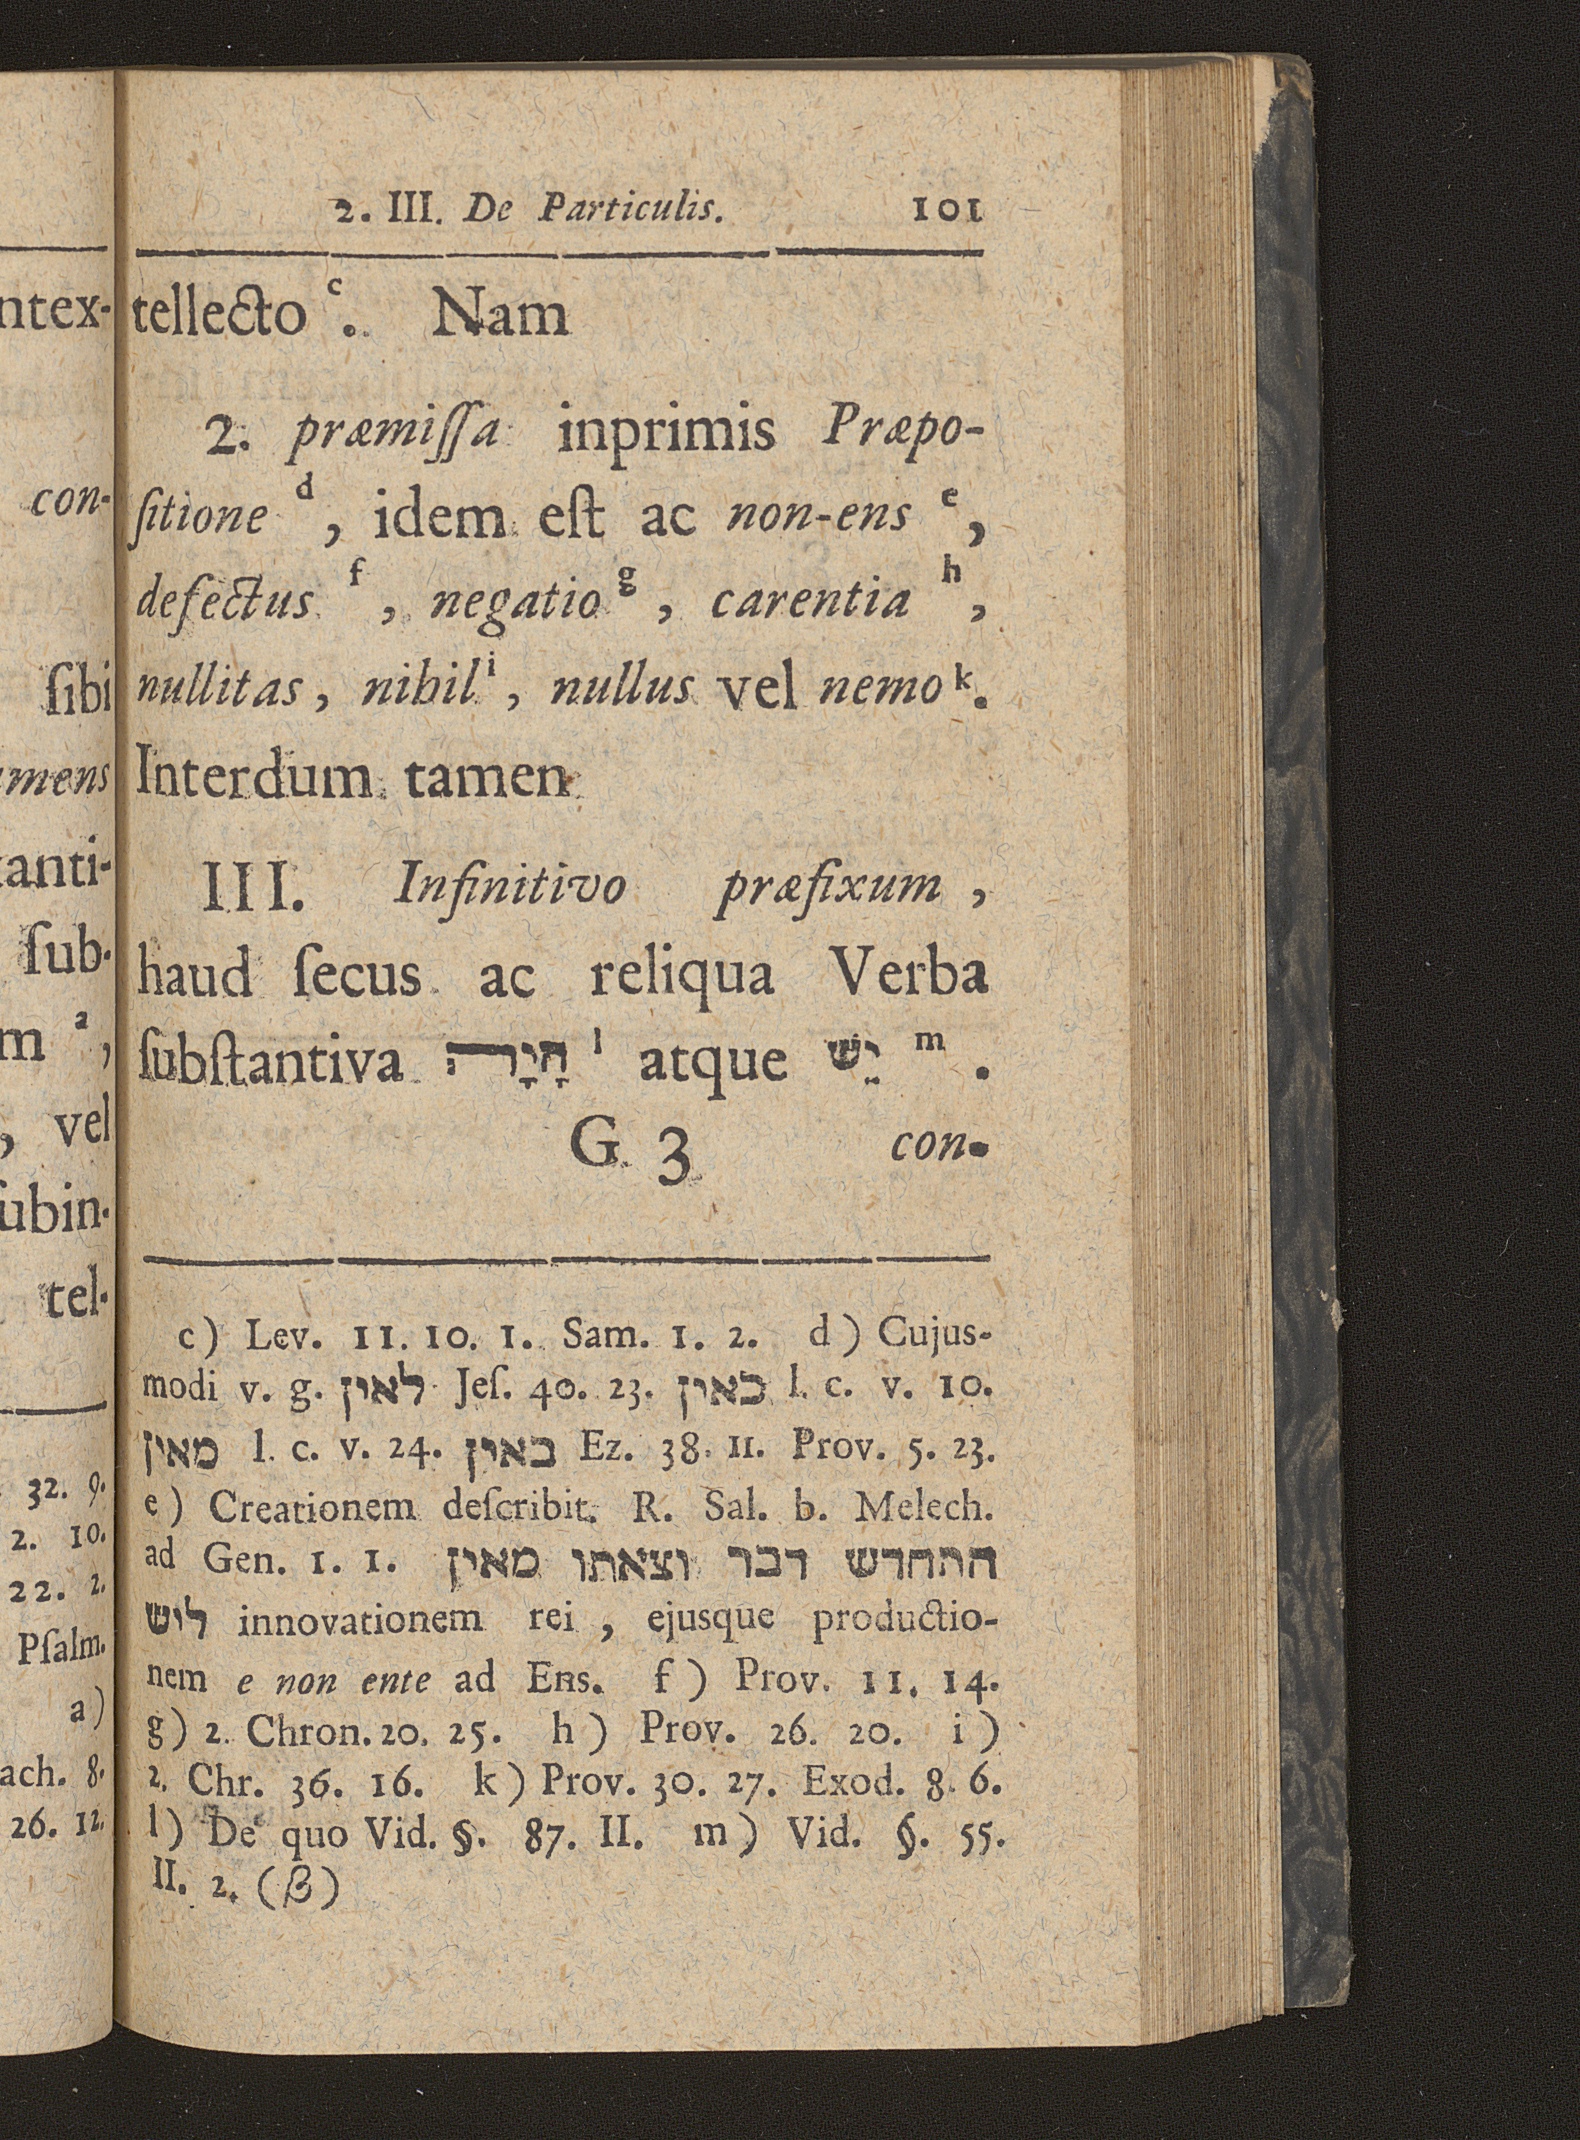 2. III. De Particulis. 101
tellecto ᶜ. Nam
2. præmiſſa inprimis Præpo-
ſitione ᵈ, idem eſt ac non-ens ᵉ,
defectus ᶠ, negatio ᵍ, carentia ʰ,
nullitas, nihil ⁱ, nullus vel nemo ᵏ.
Interdum tamen
III. Infinitivo præfixum,
haud ſecus ac reliqua Verba
ſubſtantiva הָיָה ˡ atque יֵש ᵐ.
G 3 con-
c) Lev. 11. 10. 1. Sam. 1. 2. d) Cujus-
modi v. g. לאין Jeſ. 40. 23. כאין l. c. v. 10.
מאין l. c. v. 24. באין Ez. 38. 11. Prov. 5. 23.
e) Creationem deſcribit R. Sal. b. Melech.
ad Gen. 1. 1. התחדש דבר וצאתו מאין
ליש innovationem rei, ejusque productio-
nem e non ente ad Ens. f) Prov. 11. 14.
g) 2. Chron. 20. 25. h) Prov. 26. 20. i)
2. Chr. 36. 16. k) Prov. 30. 27. Exod. 8. 6.
l) De quo Vid. §. 87. II. m) Vid. §. 55.
II. 2. (β)
ntex-
con-
ſibi
mens
tanti-
ſub-
m ᵃ,
, vel
ſubin-
tel-
32. 9.
2. 10.
22. 2.
Pſalm.
a)
ach. 8.
26. 12.